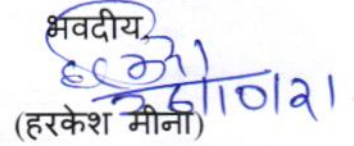 भवदीय,
26/10/21
(हरकेश मीना)